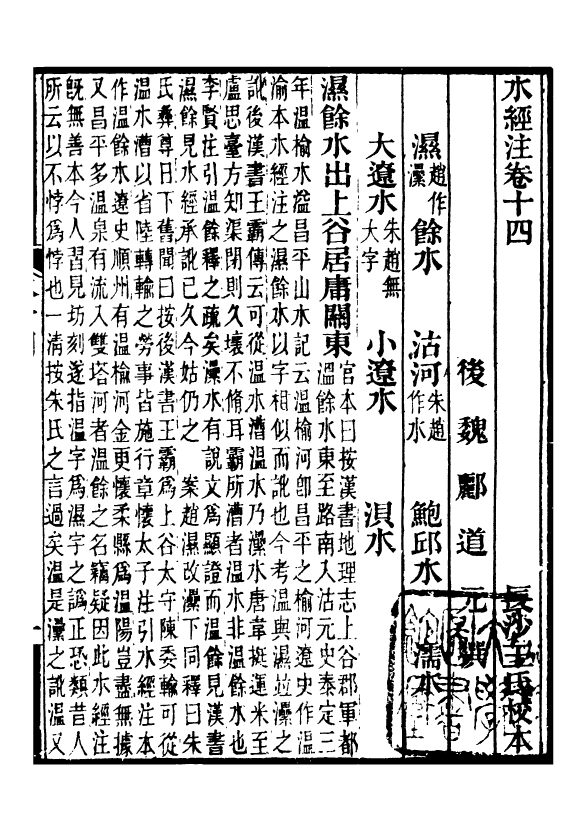 水經注卷十四 長沙王氏校本
後魏酈道元撰
濕趙作㶟餘水 沽河朱趙作水 鮑邱水 濡水
大遼水朱趙無大字 小遼水 浿水
濕餘水出上谷居庸關東
官本曰按漢書地理志上谷郡軍都
溫餘水東至路南入沽元史泰定三
年溫榆水溢昌平山水記云溫榆河卽昌平之榆河遼史作溫
渝本水經注之濕餘水以字相似而訛也今考溫與濕竝㶟之
訛後漢書王霸傳云可從溫水漕溫水乃㶟水唐韋挺運米至
盧思臺方知渠閉則久壞不脩耳霸所漕者溫水非溫餘水也
李賢注引溫餘釋之疏矣㶟水有說文爲顯證而溫餘見漢書
濕餘見水經承訛已久今姑仍之 案趙濕改㶟下同釋曰朱
氏彝尊日下舊聞曰按後漢書王霸爲上谷太守陳委輸可從
溫水漕以省陸轉輸之勞事皆施行章懷太子注引水經注本
作溫餘水遼史順州有溫榆河金更懷柔縣爲溫陽豈盡無據
又昌平多溫泉有流入雙塔河者溫餘之名竊疑因此水經注
旣無善本今人習見坊刻遂指溫字爲濕字之譌正恐類昔人
所云以不悖爲悖也一清按朱氏之言過矣溫是㶟之訛溫又